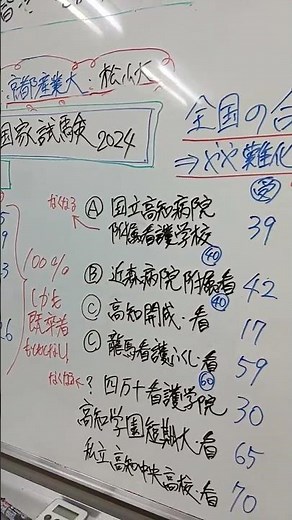 京都産業大:松山大
国家試験 2024
全国の合
⇒やや難化
なくなる
Ⓐ 国立高知病院
附属看護学校 39
40
Ⓑ 近森病院附属看 42
40
Ⓒ 高知開成・看 17
Ⓒ 龍馬看護ふくし・看 59
60
? 四万十看護学院 30
高知学園短期大・看 65
私立高知中央高校・看 70
100%
しかも
既卒者
なくなる